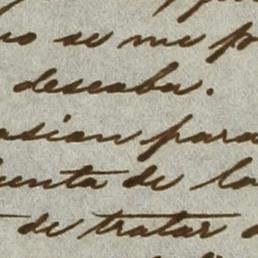 no se me p
deseaba.
asion para
uenta de la
de tratar